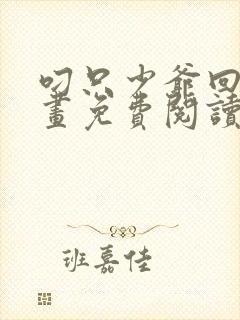 叼只少爺回
畫免費閱讀
班嘉佳